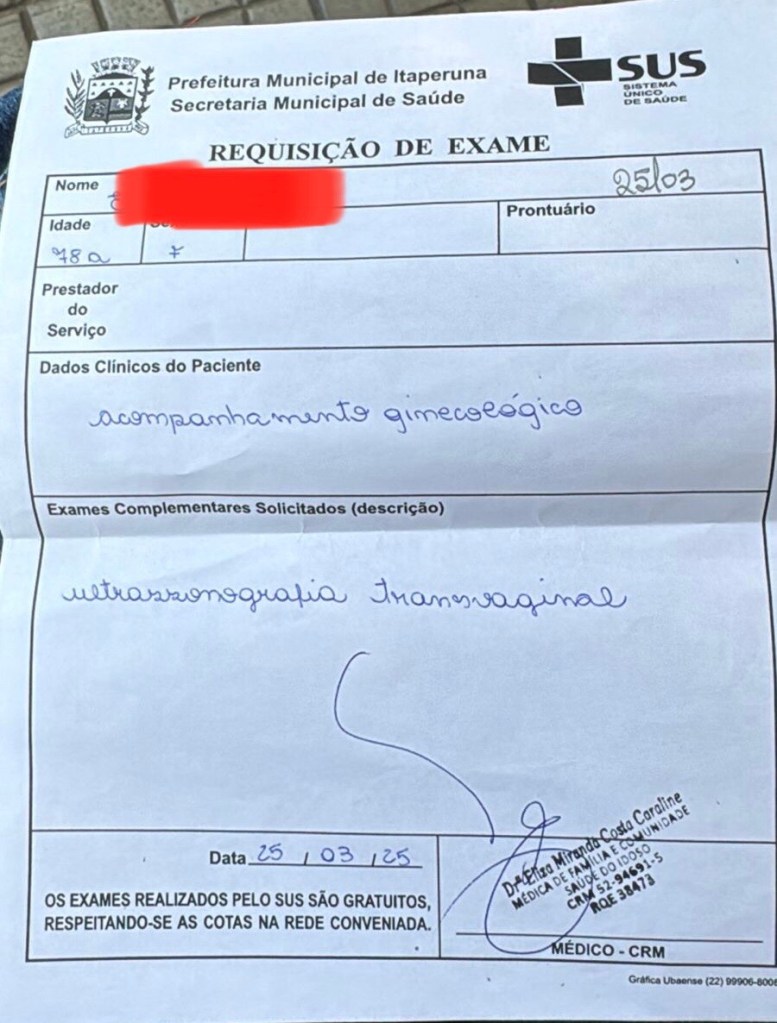 Prefeitura Municipal de Itaperuna
Secretaria Municipal de Saúde
SUS
SISTEMA
ÚNICO
DE SAÚDE
REQUISIÇÃO DE EXAME
Nome
25/03
Idade
Prontuário
78 a F
Prestador
do
Serviço
Dados Clínicos do Paciente
acompanhamento ginecológico
Exames Complementares Solicitados (descrição)
ultrassonografia transvaginal
Data 25 / 03 / 25
OS EXAMES REALIZADOS PELO SUS SÃO GRATUITOS,
RESPEITANDO-SE AS COTAS NA REDE CONVENIADA.
Drª Eliza Miranda Costa Caraline
MÉDICA DE FAMÍLIA E COMUNIDADE
SAÚDE DO IDOSO
CRM 52-94691-5
RQE 38473
MÉDICO - CRM
Gráfica Ubaense (22) 99906-8006